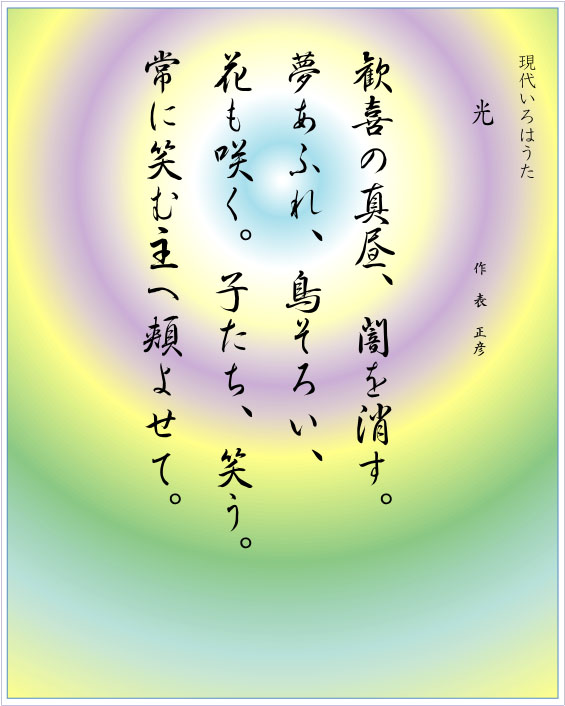 現代いろはうた
光
作 表 正彦
歓喜の真昼、闇を消す。
夢あふれ、鳥そろい、
花も咲く。子たち、笑う。
常に笑む主へ頬よせて。